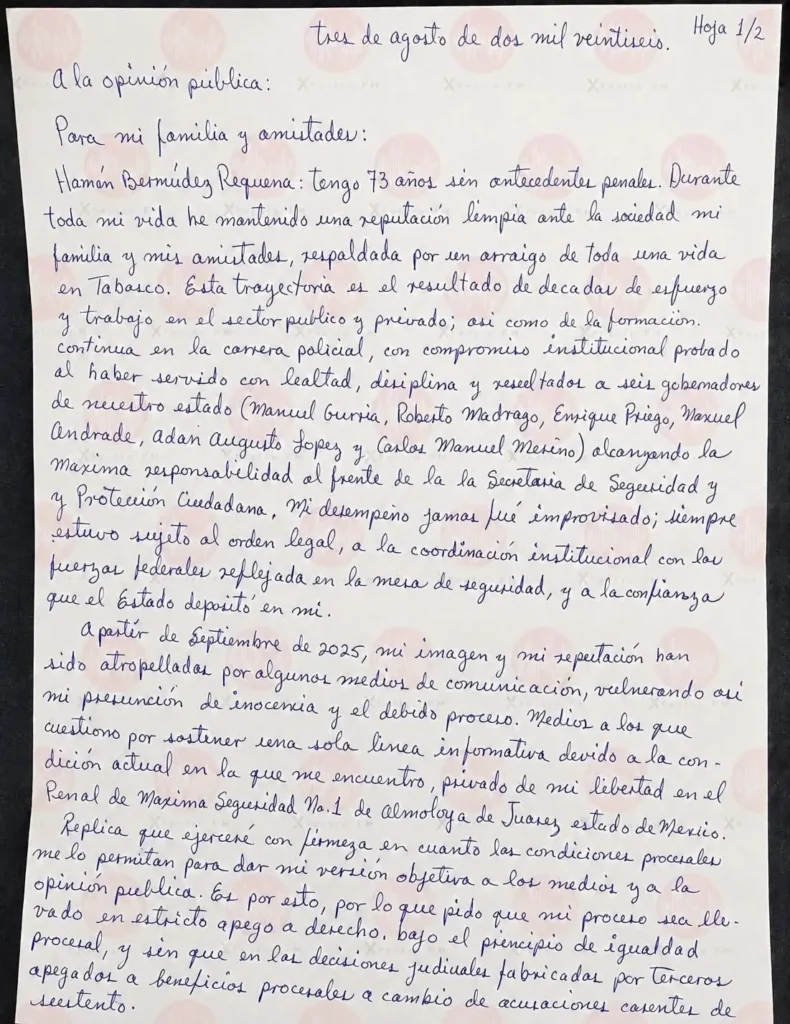 Hoja 1/2
tres de agosto de dos mil veintiseis.
A la opinión pública:
Para mi familia y amistades:
Hamán Bermúdez Requena: tengo 73 años sin antecedentes penales. Durante
toda mi vida he mantenido una reputación limpia ante la sociedad mi
familia y mis amistades, respaldada por un arraigo de toda una vida
en Tabasco. Esta trayectoria es el resultado de decadas de esfuerzo
y trabajo en el sector publico y privado; asi como de la formación.
continua en la carrera policial, con compromiso institucional probado
al haber servido con lealtad, disiplina y resultados a seis gobernadores
de nuestro estado (Manuel Gurria, Roberto Madrago, Enrique Priego, Manuel
Andrade, Adan Augusto Lopez y Carlos Manuel Merino) alcanzando la
Maxima responsabilidad al frente de la la Secretaria de Seguridad y
y Protección Ciudadana, Mi desempeño jamas fué improvisado; siempre
estuvo sujeto al orden legal, a la coordinación institucional con las
fuerzas federales reflejada en la mesa de seguridad, y a la confianza
que el Estado depositó en mi.
A partír de Septiembre de 2025, mi imagen y mi reputación han
sido atropelladas por algunos medios de comunicación, vulnerando asi
mi presunción de inocencia y el debido proceso. Medios a los que
cuestiono por sostener una sola linea informativa devido a la con-
dición actual en la que me encuentro, privado de mi libertad en el
Penal de Maxima Seguridad No.1 de Almoloya de Juarez estado de Mexico.
Replica que ejerceré con firmeza en cuanto las condiciones procesales
me lo permitan para dar mi versión objetiva a los medios y a la
opinión publica. Es por esto, por lo que pido que mi proceso sea lle-
vado en estricto apego a derecho. bajo el principio de igualdad
procesal, y sin que en las decisiones judiciales fabricadas por terceros
apegados a beneficios procesales a cambio de acusaciones carentes de
sustento.